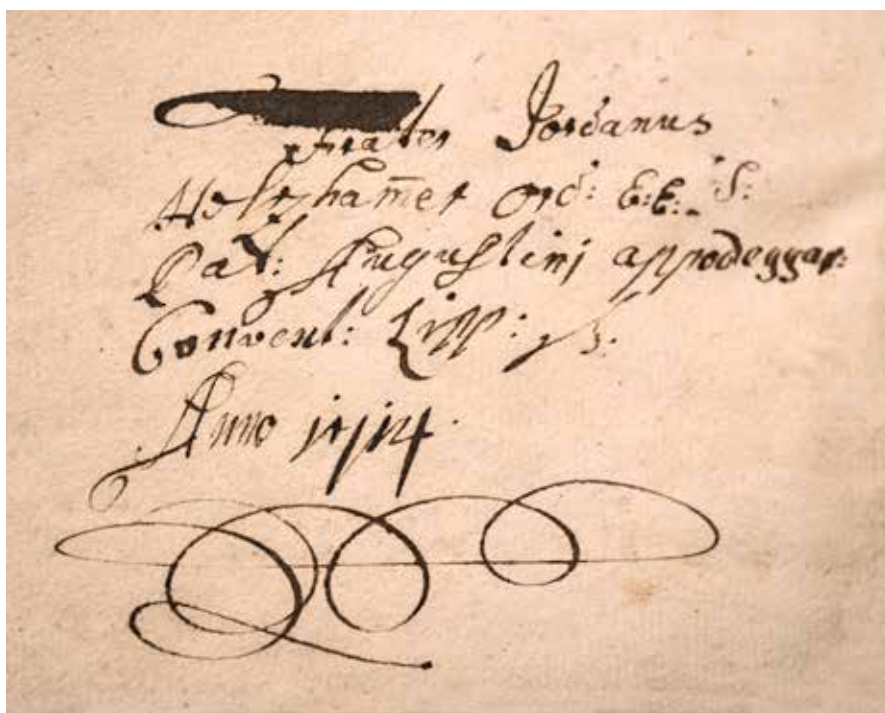 Frater Jordanus
Holtzham̅er Ord: E:E: S:
Pat: Augustinj appodeggar:
Convent: Lipp:
Anno 1714.